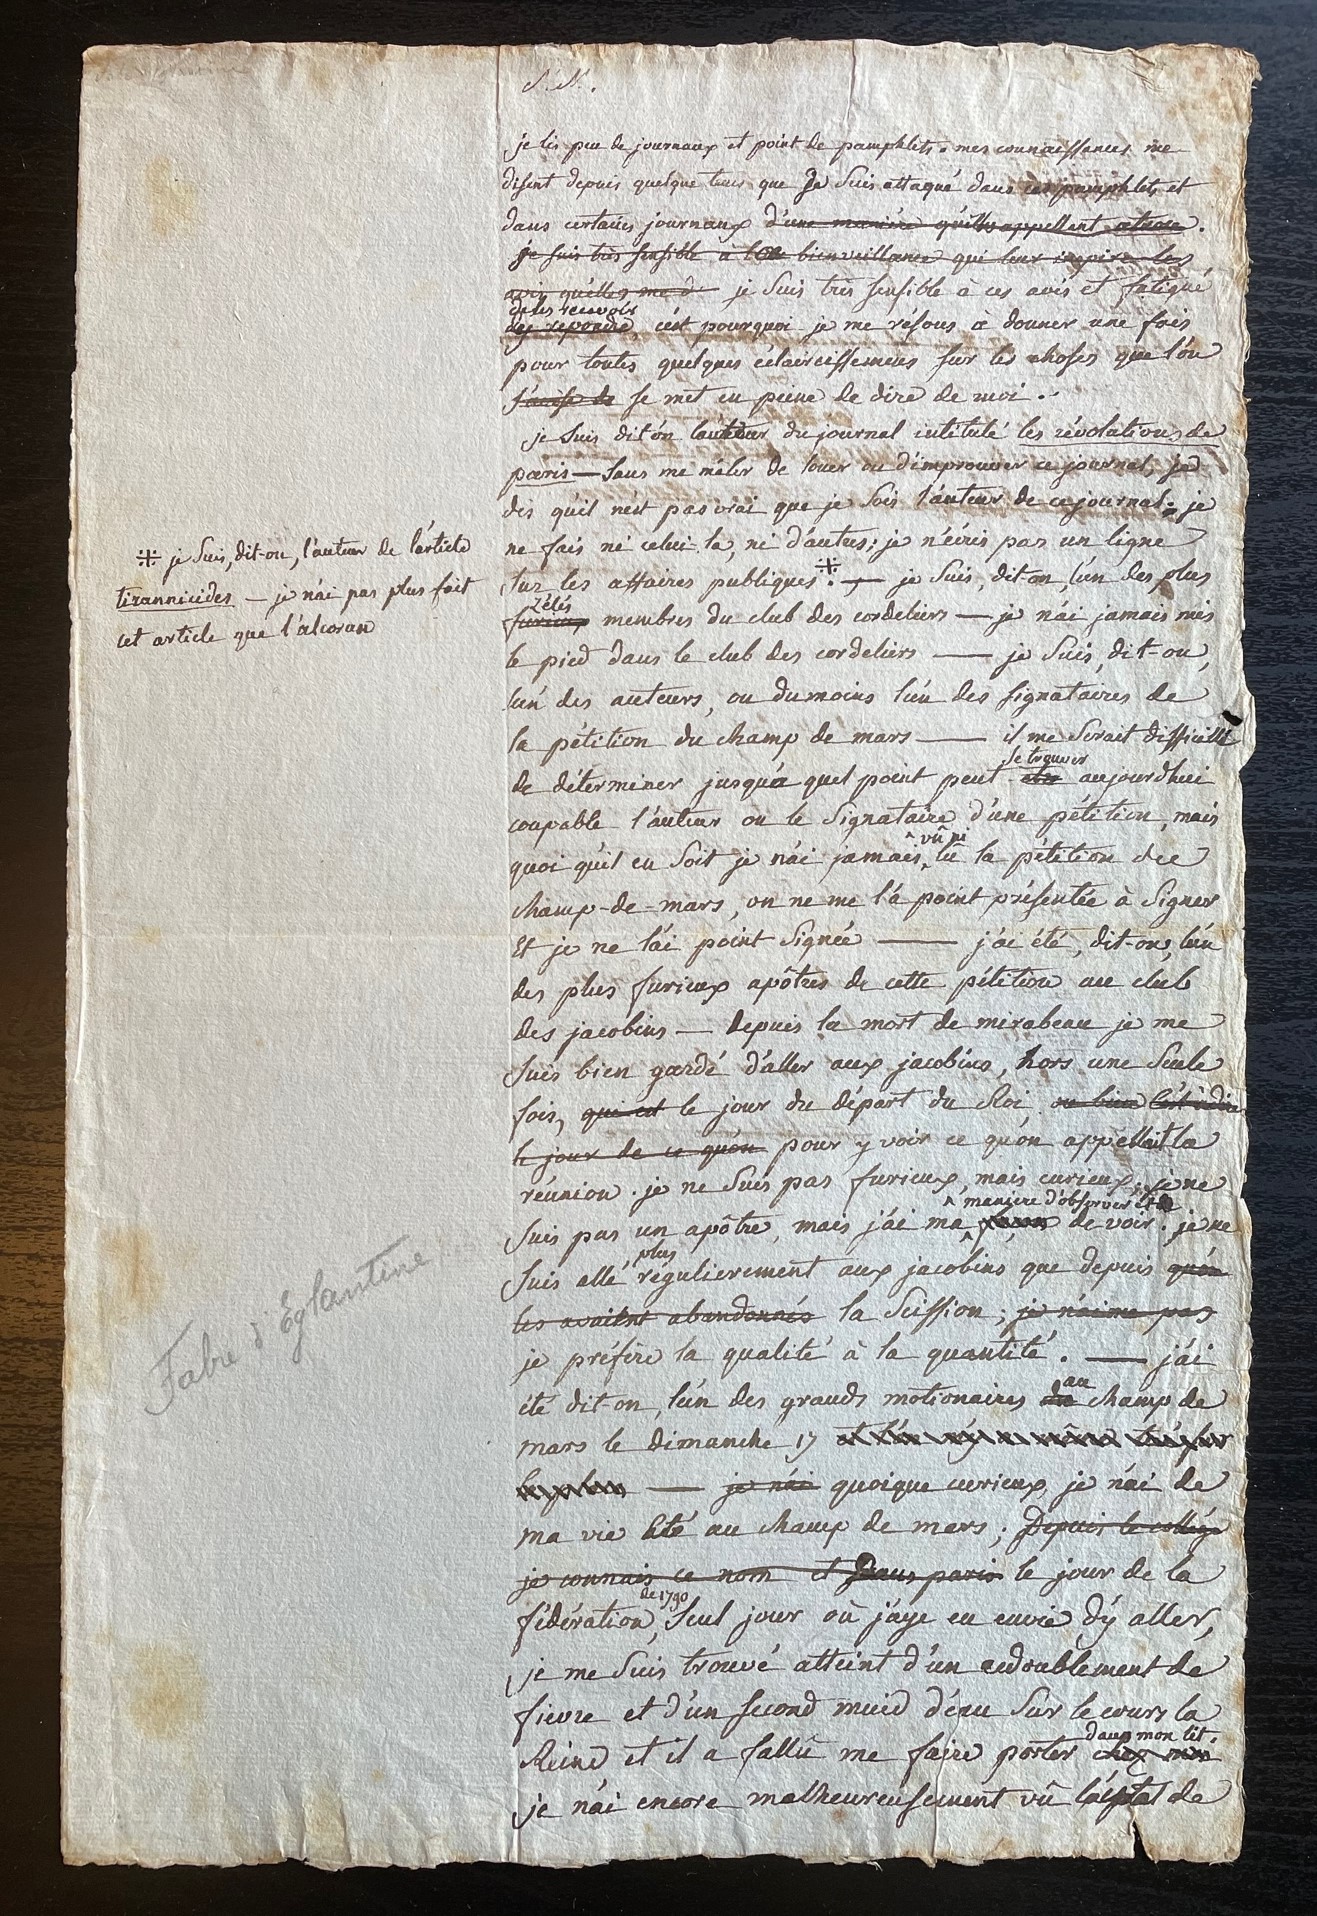 je lis peu de journaux et point de pamphlets. mes connaissances me
disent depuis quelque tems que je suis attaqué dans ces pamphlets et
dans certains journaux d'une manière qu'elles appellent atroce.
je suis très sensible à la bienveillance qui leur inspire les
avis qu'elles me d je suis très sensible à ces avis et fatigué
de les recevoir
d'y repondre, c'est pourquoi je me résous à donner une fois
pour toutes quelques éclaircissemens sur les choses que l'on
s'avise de se met en peine de dire de moi.
je suis dit-on l'auteur du journal intitulé les révolutions de
paris — sans me mêler de louer ou d'improuver ce journal, je
dis qu'il n'est pas vrai que je sois l'auteur de ce journal; je
ne fais ni celui-la, ni d'autres; je n'écris pas un ligne
sur les affaires publiques. — je suis, dit-on, l'un des plus
zélés
furieux membres du club des cordeliers — je n'ai jamais mis
le pied dans le club des cordeliers — je suis, dit-on,
l'un des auteurs, ou du moins l'un des signataires de
la pétition du champ de mars — il me serait difficile
se trouver
de déterminer jusqu'à quel point peut être aujourdhui
coupable l'auteur ou le signataire d'une pétition, mais
vû ni
quoi qu'il en soit je n'ai jamais lû la pétition du
champ-de-mars, on ne me l'a point présentée à signer
Et je ne l'ai point signée — j'ai été, dit-on, l'un
des plus furieux apôtres de cette pétition au club
des jacobins — depuis la mort de mirabeau je me
suis bien gardé d'aller aux jacobins, hors une seule
fois, qui est le jour du départ du Roi, ou bien c'est à dire
le jour de ce qu'on pour y voir ce qu'on appellait la
réunion. je ne suis pas furieux, mais curieux; je ne
manière d'observer et de
suis pas un apôtre, mais j'ai ma façon de voir. je ne
plus
suis allé régulierement aux jacobins que depuis qu'on
les avaient abandonnés la scission; je n'aime pas
je préfère la qualité à la quantité. — j'ai
au
été dit-on, l'un des grands motionaires du champ de
mars le dimanche 17
— je n'ai quoique curieux, je n'ai de
ma vie été au champ de mars; Depuis le collége
je connais ce nom et Dans paris le jour de la
de 1790
fédération, seul jour où j'aye eu envie d'y aller,
je me suis trouvé atteint d'un redoublement de
fievre et d'un second muid d'eau sur le cours la
dans mon lit.
Reine et il a fallû me faire porter chez moi
je n'ai encore malheureusement vû l'autel de
※ je suis, dit-on, l'auteur de l'article
tirannicides — je n'ai pas plus fait
cet article que l'alcoran
Fabre d'Églantine